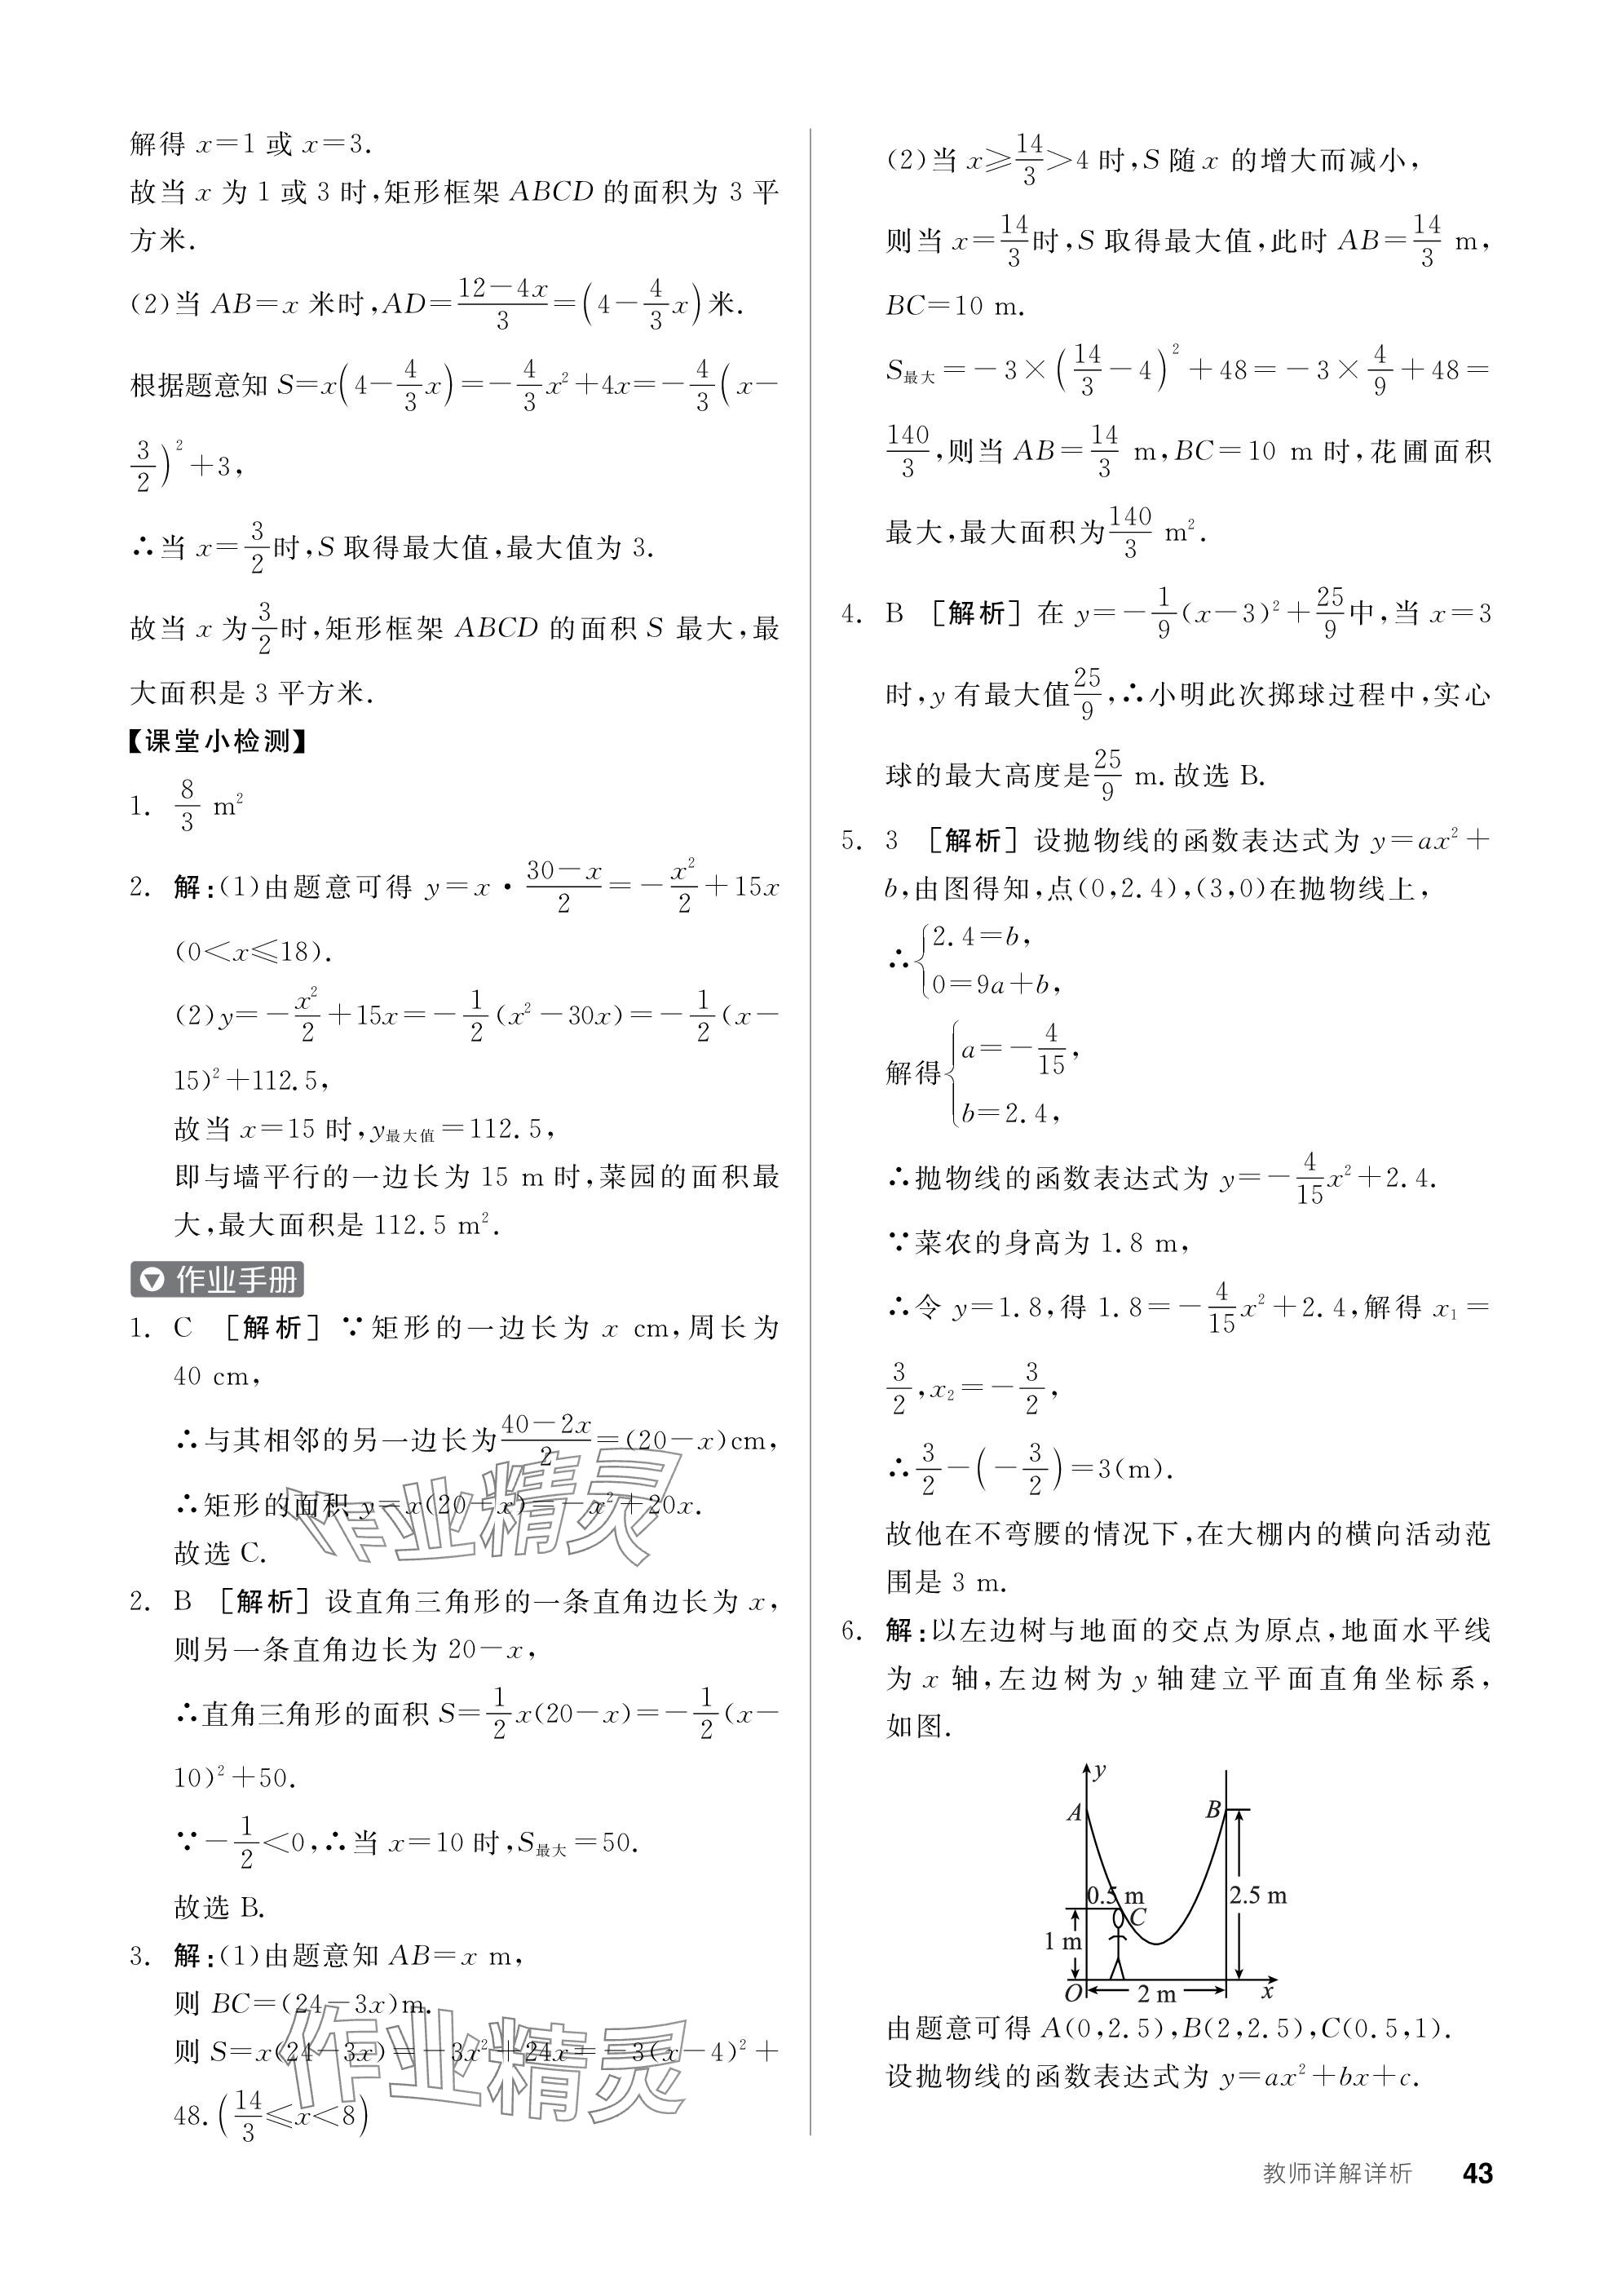 解得 x=1 或 x=3.
故当 x 为 1 或 3 时,矩形框架 ABCD 的面积为 3 平
方米.
(2)当 AB=x 米时,AD=\frac{12-4x}{3}=(4-\frac{4}{3}x)米.
根据题意知 S=x(4-\frac{4}{3}x)=-\frac{4}{3}x²+4x=-\frac{4}{3}(x-
\frac{3}{2})²+3,
∴当 x=\frac{3}{2}时,S 取得最大值,最大值为 3.
故当 x 为\frac{3}{2}时,矩形框架 ABCD 的面积 S 最大,最
大面积是 3 平方米.
【课堂小检测】
1. \frac{8}{3} m²
2. 解:(1)由题意可得 y=x·\frac{30-x}{2}=-\frac{x²}{2}+15x
(0<x≤18).
(2)y=-\frac{x²}{2}+15x=-\frac{1}{2}(x²-30x)=-\frac{1}{2}(x-
15)²+112.5,
故当 x=15 时,y最大值=112.5,
即与墙平行的一边长为 15 m 时,菜园的面积最
大,最大面积是 112.5 m².
作业手册
1. C [解析]∵矩形的一边长为 x cm,周长为
40 cm,
∴与其相邻的另一边长为\frac{40-2x}{2}=(20-x)cm,
∴矩形的面积 y=x(20-x)=-x²+20x.
故选 C.
作业精灵
2. B [解析]设直角三角形的一条直角边长为 x,
则另一条直角边长为 20-x,
∴直角三角形的面积 S=\frac{1}{2}x(20-x)=-\frac{1}{2}(x-
10)²+50.
∵-\frac{1}{2}<0,∴当 x=10 时,S最大=50.
故选 B.
3. 解:(1)由题意知 AB=x m,
则 BC=(24-3x)m.
则 S=x(24-3x)=-3x²+24x=-3(x-4)²+
48.(\frac{14}{3}≤x<8)
作业精灵
(2)当 x≥\frac{14}{3}>4 时,S 随 x 的增大而减小,
则当 x=\frac{14}{3}时,S 取得最大值,此时 AB=\frac{14}{3} m,
BC=10 m.
S最大=-3×(\frac{14}{3}-4)²+48=-3×\frac{4}{9}+48=
\frac{140}{3},则当 AB=\frac{14}{3} m,BC=10 m 时,花圃面积
最大,最大面积为\frac{140}{3} m².
4. B [解析]在 y=-\frac{1}{9}(x-3)²+\frac{25}{9}中,当 x=3
时,y 有最大值\frac{25}{9},∴小明此次掷球过程中,实心
球的最大高度是\frac{25}{9} m.故选 B.
5. 3 [解析]设抛物线的函数表达式为 y=ax²+
b,由图得知,点(0,2.4),(3,0)在抛物线上,
∴{2.4=b,
0=9a+b,
解得{a=-\frac{4}{15},
b=2.4,
∴抛物线的函数表达式为 y=-\frac{4}{15}x²+2.4.
∵菜农的身高为 1.8 m,
∴令 y=1.8,得 1.8=-\frac{4}{15}x²+2.4,解得 x₁=
\frac{3}{2},x₂=-\frac{3}{2},
∴\frac{3}{2}-(-\frac{3}{2})=3(m).
故他在不弯腰的情况下,在大棚内的横向活动范
围是 3 m.
6. 解:以左边树与地面的交点为原点,地面水平线
为 x 轴,左边树为 y 轴建立平面直角坐标系,
如图.
y
A B
0.5 m 2.5 m
C
1 m
O 2 m x
由题意可得 A(0,2.5),B(2,2.5),C(0.5,1).
设抛物线的函数表达式为 y=ax²+bx+c.
教师详解详析 43